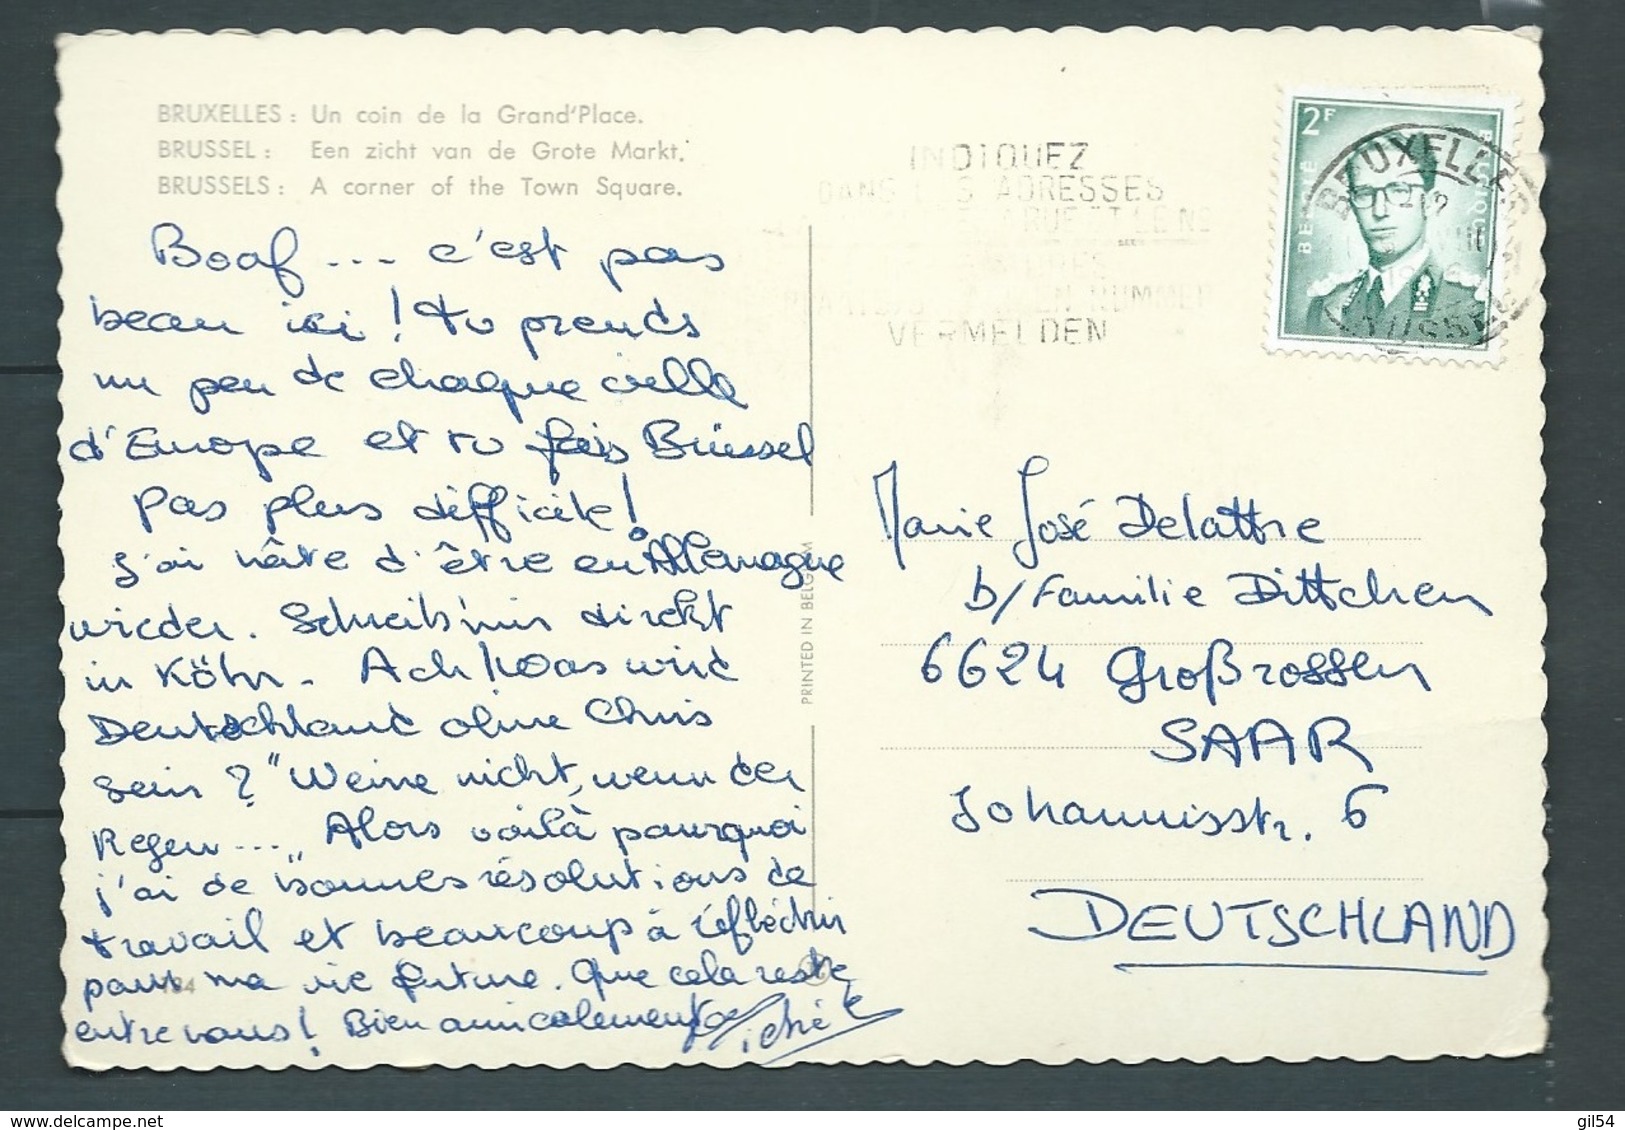 BRUXELLES : Un coin de la Grand'Place.
BRUSSEL : Een zicht van de Grote Markt.
BRUSSELS : A corner of the Town Square.
Boaf ... c'est pas
beau ici ! tu prends
un peu de chaque ville
d'Europe et tu fais Brüssel
Pas plus difficile !
J'ai hâte d'être en Allemagne
wieder. Schreib'mir direkt
in Köln. Ach ! was wird
Deutschland ohne Chris
sein ? "Weine nicht, wenn der
Regen ... " Alors voilà pourquoi
j'ai de bonnes résolutions de
travail et beaucoup à réfléchir
pour ma vie future. Que cela reste
entre nous ! Bien amicalement
PRINTED IN BELGIUM
INDIQUEZ
DANS LES ADRESSES
LA RUE ET LE No
EN NUMMER
VERMELDEN
2F
BELGIË
BELGIQUE
BRUXELLES
BRUSSEL
Marie José Delattre
b/Familie Dittchen
6624 Großrosseln
SAAR
Johannisstr. 6
DEUTSCHLAND
gil54